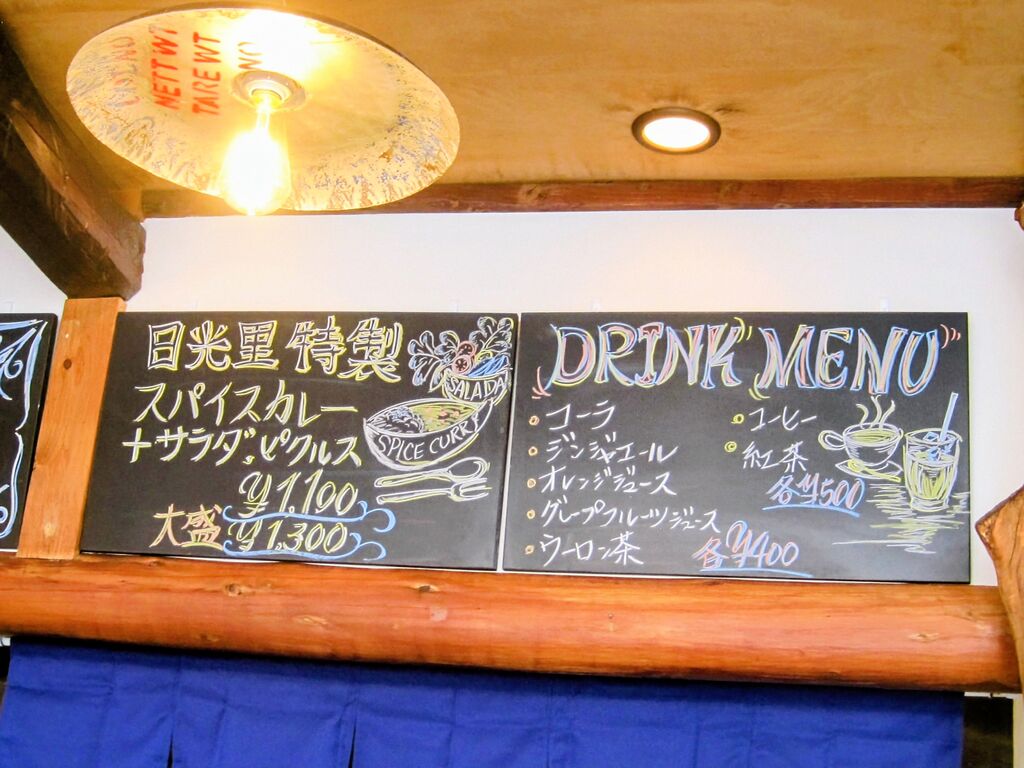 NETT WT
TARE WT
NO
日光里 特製
スパイスカレー
+サラダ、ピクルス
¥1,100
大盛 ¥1,300
SALADA
SPICE CURRY
DRINK MENU
コーラ
ジンジャエール
オレンジジュース
グレープフルーツジュース
ウーロン茶
各¥400
コーヒー
紅茶
各¥500